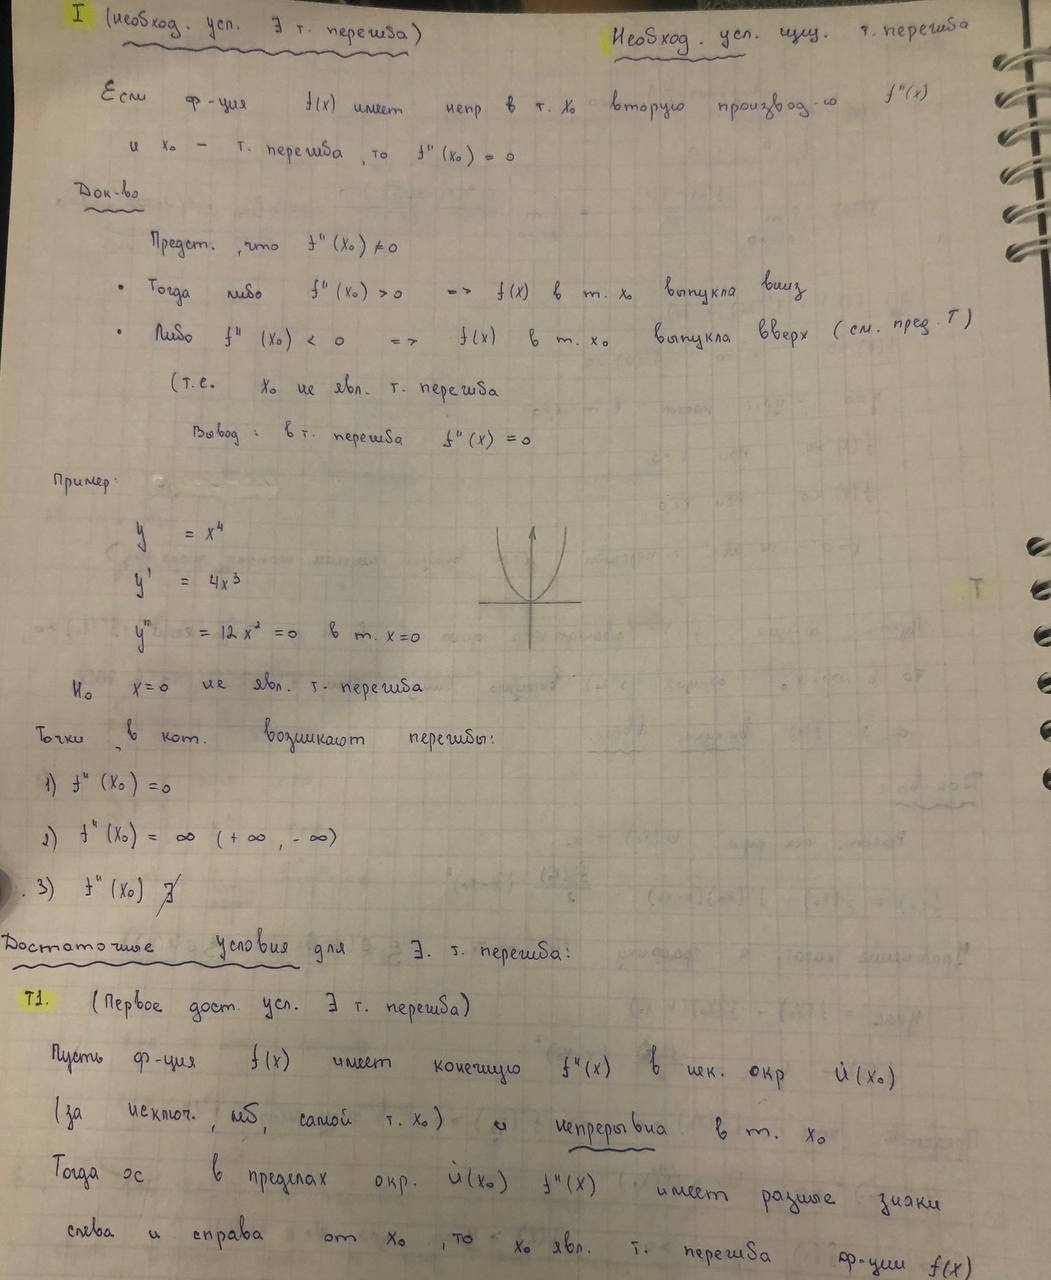 I (необход. усл. ∃ т. перегиба)
Необход. усл. сущ. т. перегиба
Если ф-ция f(x) имеет непр в т. x₀ вторую производ-ю f''(x)
и x₀ - т. перегиба, то f''(x₀) = 0
Док-во
Предст., что f''(x₀) ≠ 0
• Тогда либо f''(x₀) > 0 => f(x) в т. x₀ выпукла вниз
• Либо f''(x₀) < 0 => f(x) в т. x₀ выпукла вверх (см. пред. Т)
(т.е. x₀ не явл. т. перегиба
Вывод: в т. перегиба f''(x) = 0
Пример:
y = x⁴
y' = 4x³
y'' = 12x² = 0 в т. x=0
Но x=0 не явл. т. перегиба
Точки, в кот. возникают перегибы:
1) f''(x₀) = 0
2) f''(x₀) = ∞ (+∞, -∞)
3) f''(x₀) ∄
Достаточные условия для ∃. т. перегиба:
T1. (Первое дост. усл. ∃ т. перегиба)
Пусть ф-ция f(x) имеет конечную f''(x) в нек. окр U̇(x₀)
(за исключ., мб, самой т. x₀) и непрерывна в т. x₀
Тогда в пределах окр. U̇(x₀) f''(x) имеет разные знаки
слева и справа от x₀, то x₀ явл. т. перегиба ф-ции f(x)